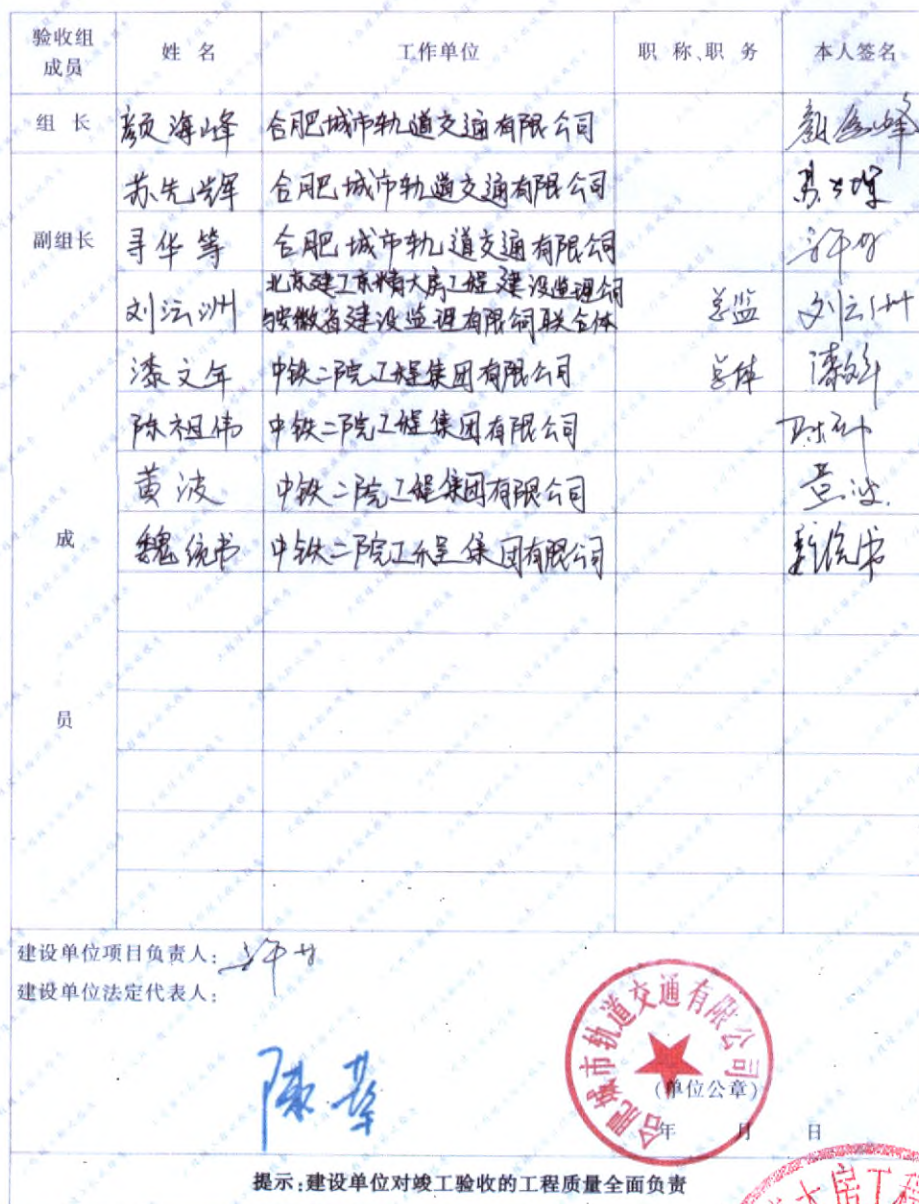 验收组成员 姓 名 工作单位 职 称、职 务 本人签名
组 长 颜海峰 合肥城市轨道交通有限公司 颜海峰
副组长 苏先辉 合肥城市轨道交通有限公司
寻华等 合肥城市轨道交通有限公司
刘沄洲 北京建工京精大房工程建设监理公司 总监 刘沄洲
与安徽省建设监理有限公司联合体
漆文年 中铁二院工程集团有限公司 总体 漆文年
陈祖伟 中铁二院工程集团有限公司
黄波 中铁二院工程集团有限公司 黄波
魏统书 中铁二院工程集团有限公司 魏统书
成
员
建设单位项目负责人:
建设单位法定代表人:
合肥城市轨道交通有限公司
(单位公章)
年 月 日
提示:建设单位对竣工验收的工程质量全面负责
大房工程